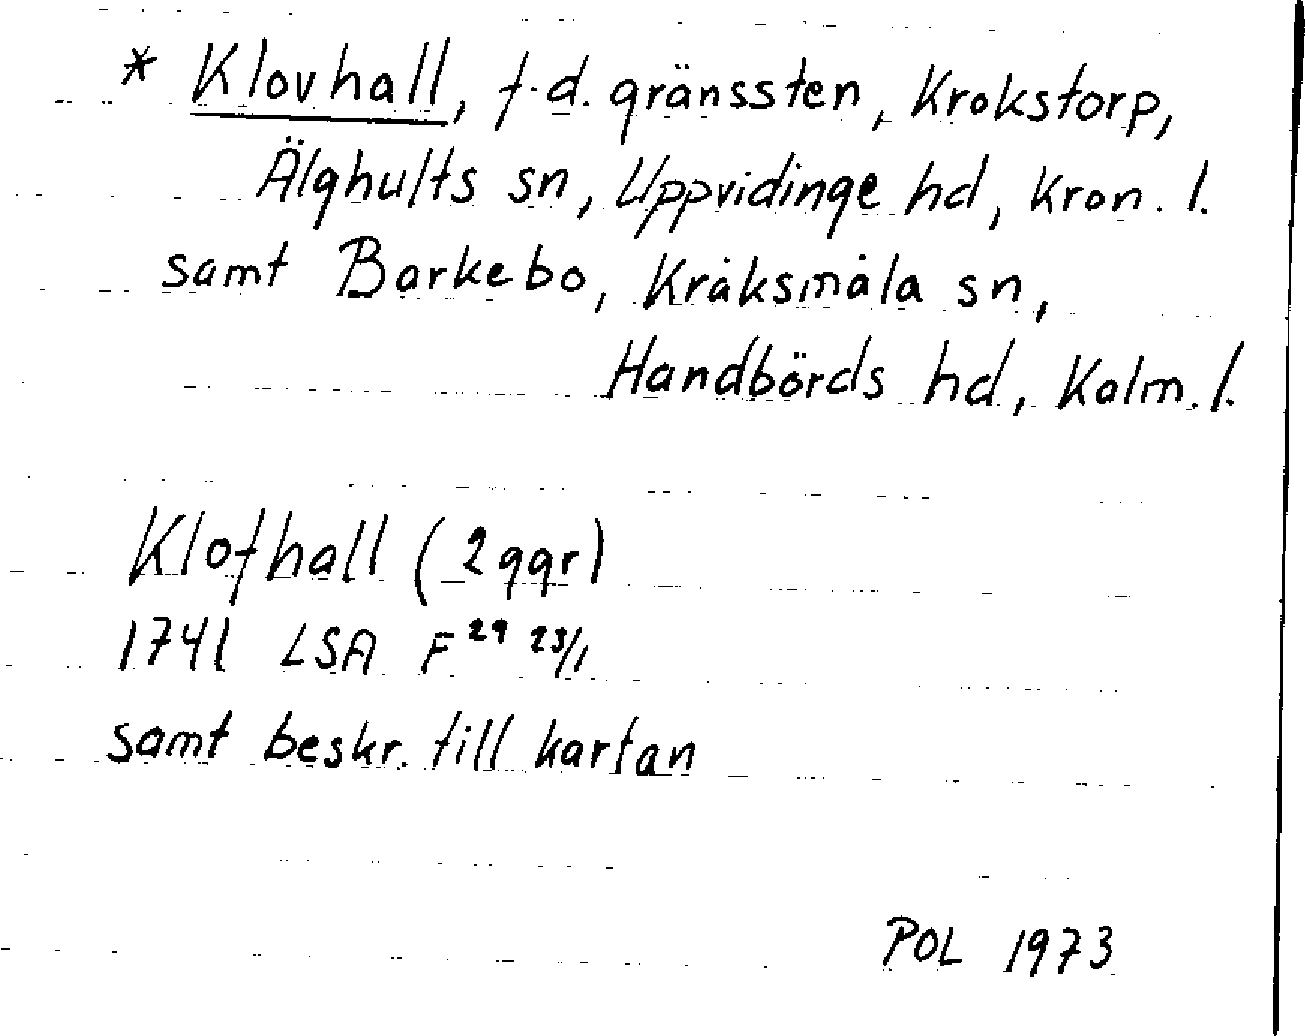 * Klovhall, f.d. gränssten, Krokstorp,
Älghults sn, Uppvidinge hd, Kron. l.
samt Barkebo, Kråksmåla sn,
Handbörds hd, Kalm. l.
Klofhall (2 ggr)
1741 LSA F²⁹ 23/1
samt beskr. till kartan
POL 1973